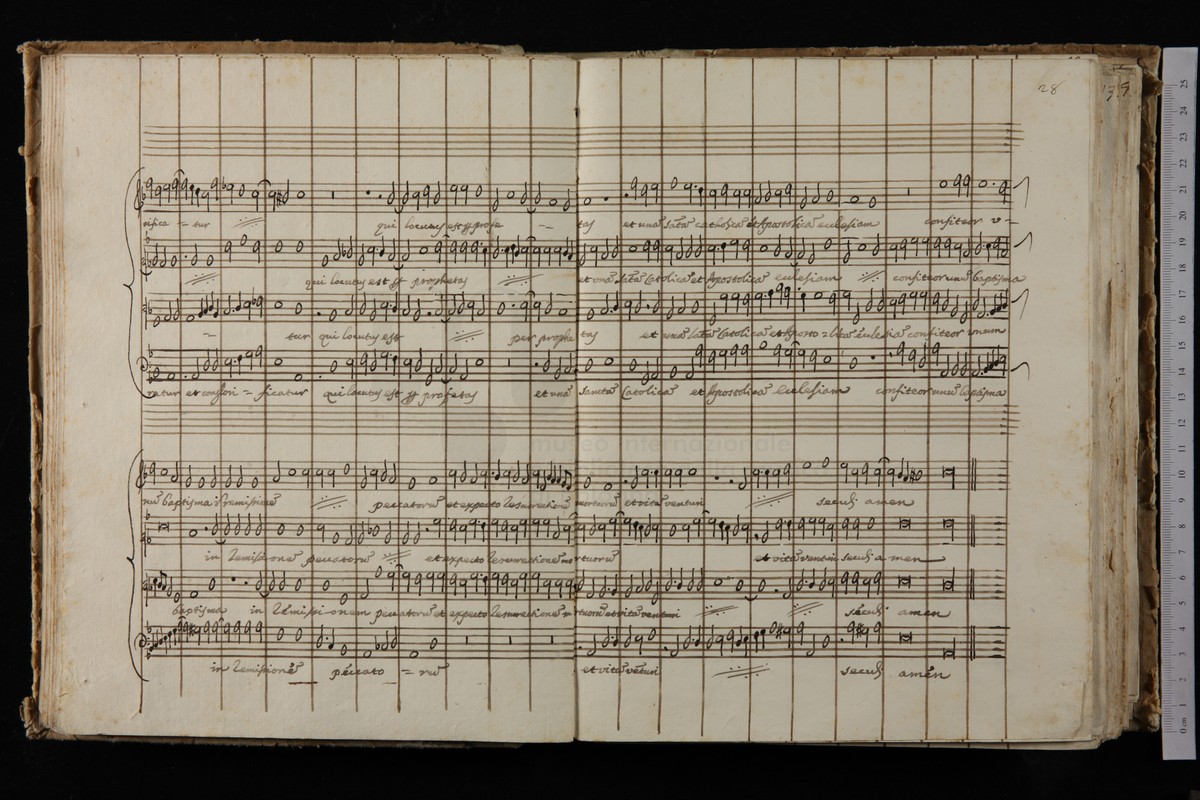 28
139
rifica = tur qui locutus est p profe - - tas et unã sãtã catholicã et Apostolicã ecclesiam confiteor u -
qui locutus est p prophetas et unã sãtã Catolicã et Apostolicã ecclesiam confiteor unũ baptisma
- tur qui locutus est per prophe tas et unã sãtã Catolicã et Aposto = licã ecclesiã confiteor unum
ratur et conglori = ficatur qui locutus est p profetas et unã sancta Catolicã et Apostolicã ecclesiam confiteor unũ baptisma
museo internazionale
nũ baptisma in remissionẽ peccatorũ et expecto resurrectionẽ mortuorũ et vitã venturi seculi amen
in remissionẽ peccatorũ et expecto resurrectionẽ mo tuorũ et vitã venturi seculi a men
baptisma in remissi onem peccatorũ et expecto resurrectionẽ tuorũ et vitã venturi seculi amen
in remissionẽ peccato = rũ et vitã vẽturi seculi amen